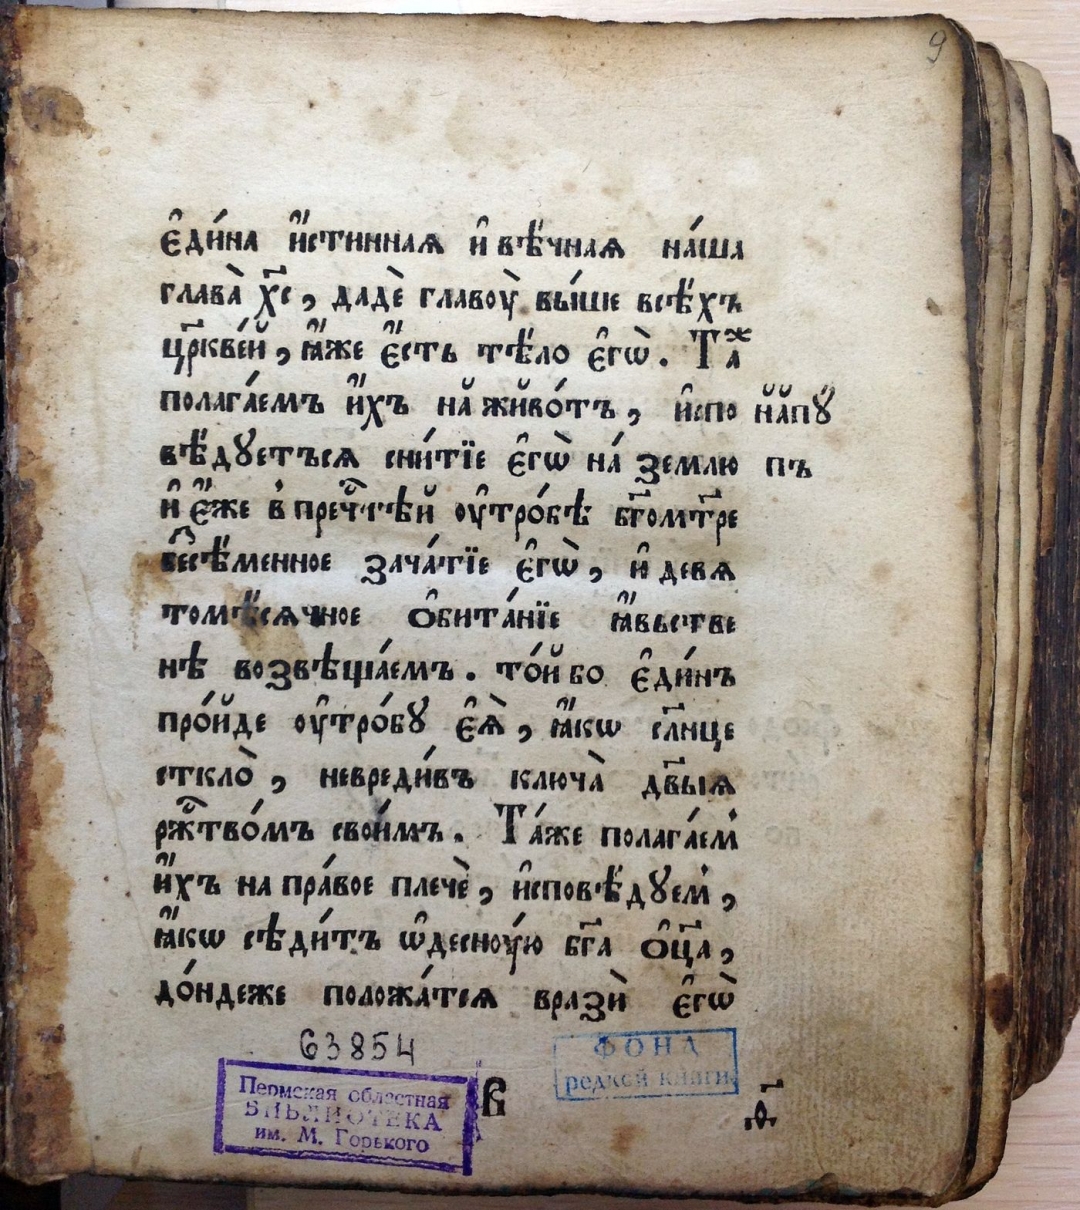 9
є҆ди́на и҆́стиннаѧ и҆ вѣ́чнаѧ на́ша
глава̀ хс҃, дадѐ главоу̀ вы́ше всѣ́хъ
цр҃кве́й, ꙗ҆́же є҆́сть тѣ́ло є҆гѡ̀. Та́ж
полага́емъ и҆́хъ на живо́тъ, и҆спо на пꙋ
вѣ́дꙋетъсѧ сни́тїе є҆гѡ̀ на́ землю пъ
и҆ є҆́же в пречⷭ҇тѣй оу҆тро́бѣ бг҃омт҃ре
бесѣ́менное зача́тїе є҆гѡ̀, и҆ девѧ
томѣ́сѧчное ѻ҆бита́нїе ꙗ҆́вьстве
нѣ возвѣща́емъ. то́й бо є҆ди́нъ
про́йде оу҆тро́бꙋ є҆ѧ̀, ꙗ҆́кѡ сл҃нце
сткло̀, невреди́въ ключа̀ дв҃ыѧ
ржⷭ҇тво́мъ свои́мъ. Та́же полага́ем
и҆́хъ на пра́вое плечѐ, и҆сповѣ́дꙋем,
ꙗ҆́кѡ сѣди́тъ ѡ҆десноу́ю бг҃а ѻ҆ц҃а,
до́ндеже положа́тсѧ вразѝ є҆гѡ̀
63854
Пермская областная
БИБЛИОТЕКА
им. М. Горького
в
ФОНД
редкой книги
д҃